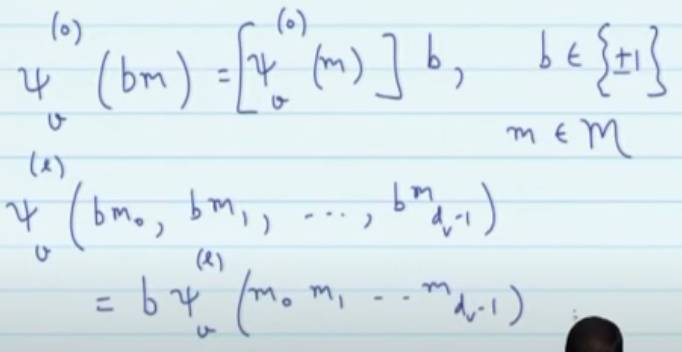 ψ_v^{(0)} (bm) = [ψ_v^{(0)} (m)] b, b ∈ {±1}
m ∈ M
ψ_v^{(l)} (bm_0, bm_1, ..., bm_{d_v-1})
= b ψ_v^{(l)} (m_0 m_1 -- m_{d_v-1})